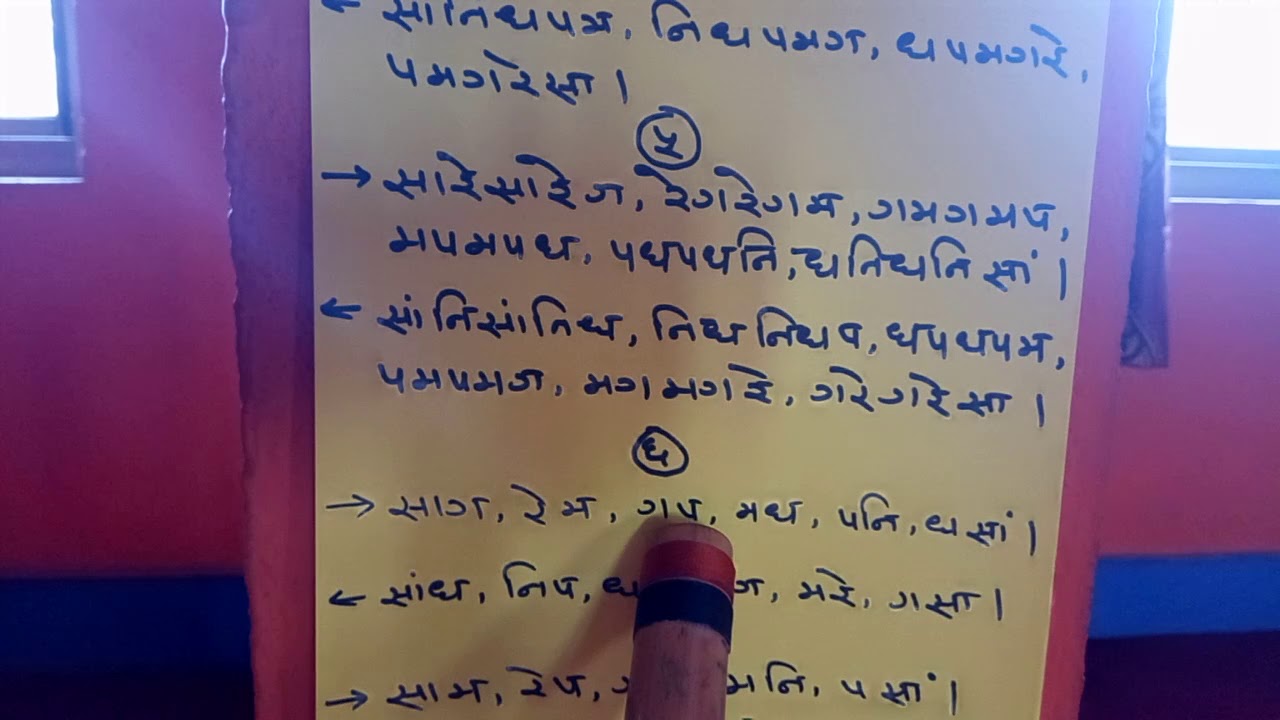 ← सांनिधपम, निधपमग, धपमगरे,
पमगरेसा।
५
→ सारेसारेग, रेगरेगम, गमगमप,
मपमपध, पधपधनि, धनिधनिसां।
← सांनिसांनिध, निधनिधप, धपधपम,
पमपमग, मगमगरे, गरेगरेसा।
६
→ साग, रेम, गप, मध, पनि, धसां।
← सांध, निप, मरे, गसा।
→ साम, रेप, मनि, पसां।